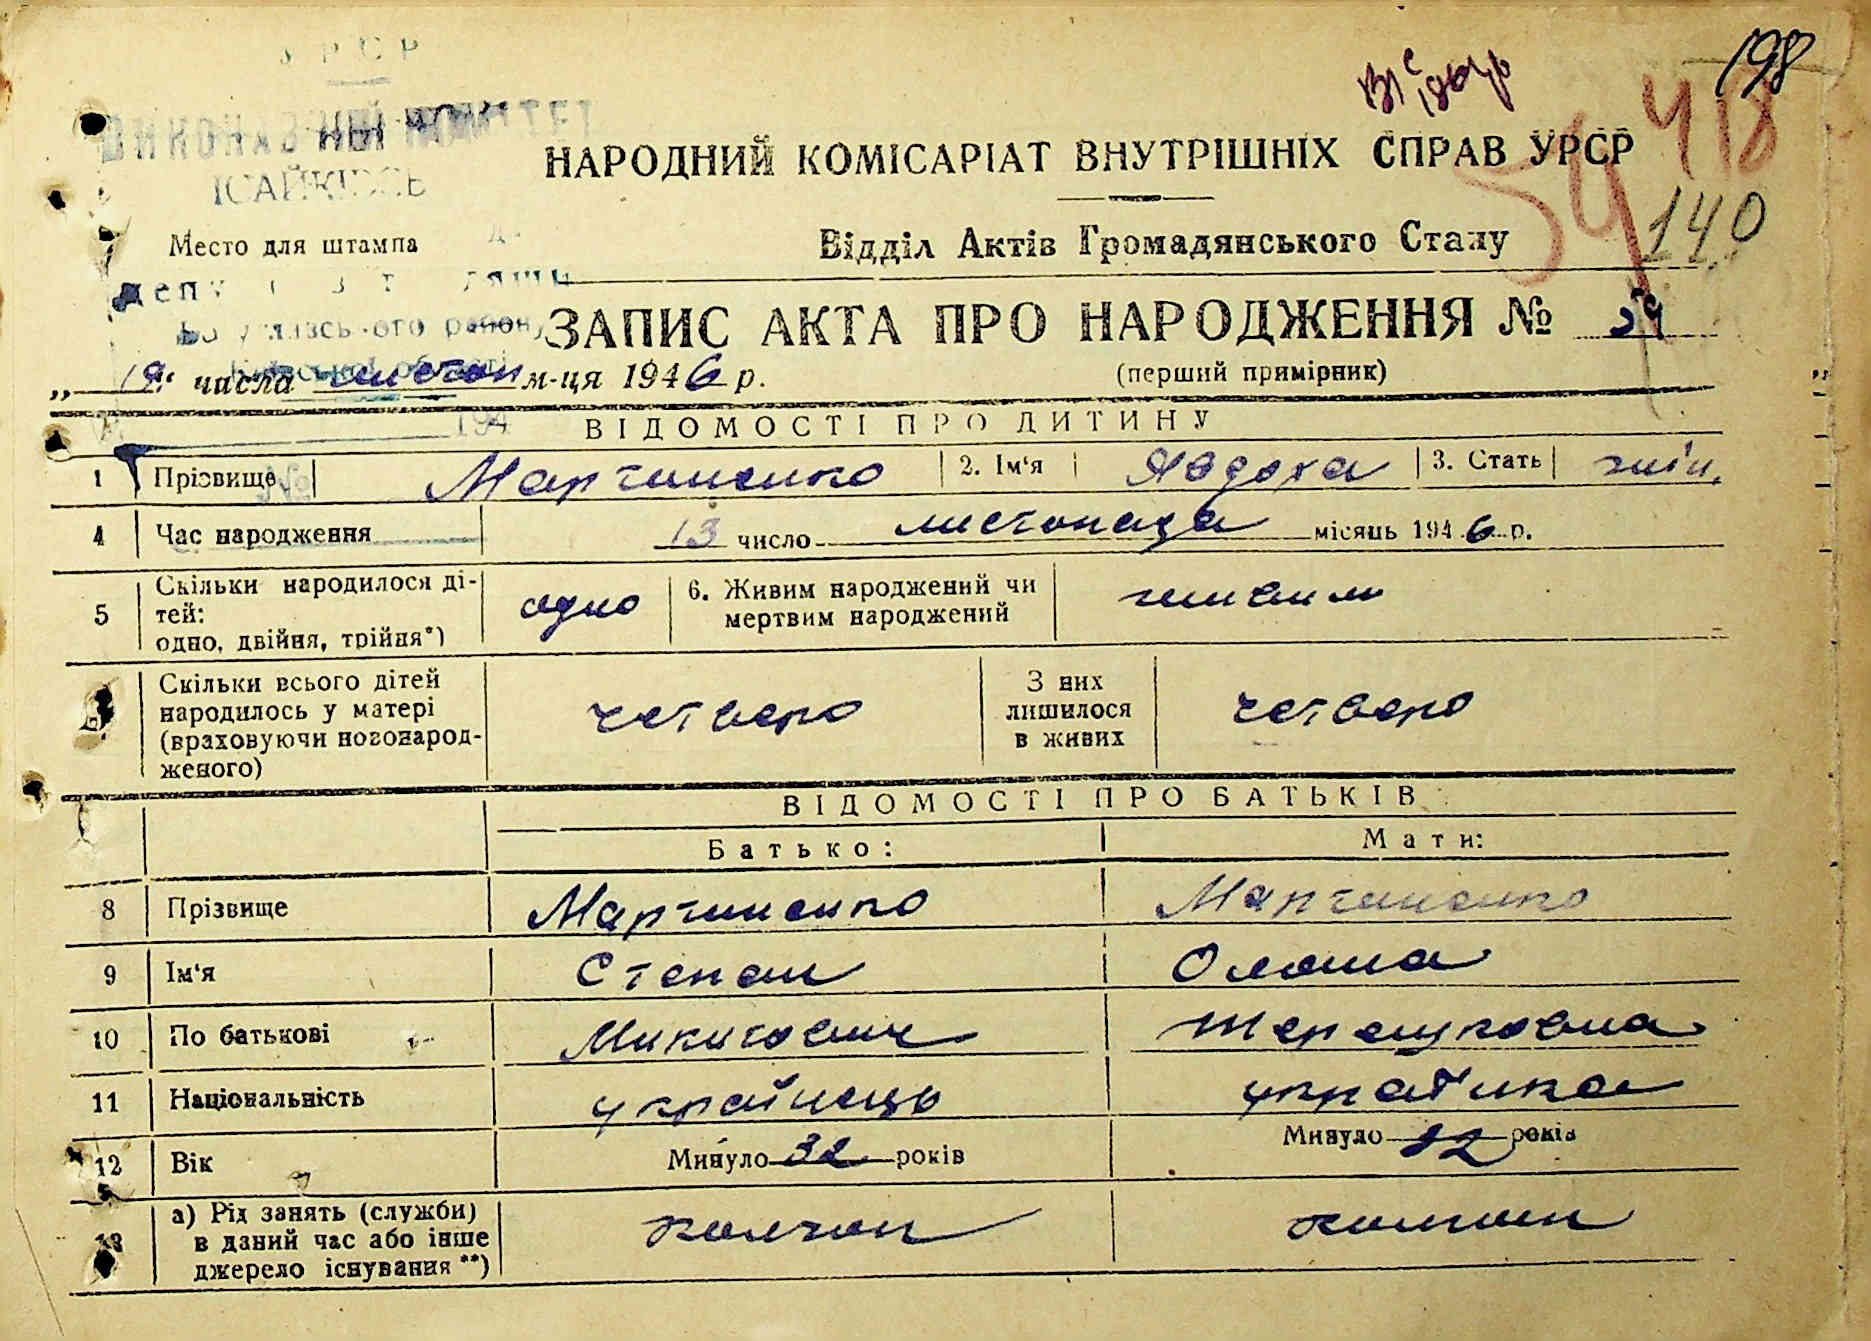 УРСР
198
ВИКОНАВЧИЙ КОМІТЕТ
418
НАРОДНИЙ КОМІСАРІАТ ВНУТРІШНІХ СПРАВ УРСР
ІСАЙКІВСЬ
54
140
Место для штампа
Відділ Актів Громадянського Стану
району
ЗАПИС АКТА ПРО НАРОДЖЕННЯ № 54
„ 19 “ числа листоп м-ця 1946 р.
(перший примірник)
194
ВІДОМОСТІ ПРО ДИТИНУ
1 Прізвище Мартиненко 2. Ім'я Явдоха 3. Стать жін.
4 Час народження 13 число листопада місяць 1946 р.
5 Скільки народилося ді-
тей:
одно, двійня, трійня*)
одно
6. Живим народжений чи
мертвим народжений
живим
Скільки всього дітей
народилось у матері
(враховуючи новонарод-
женого)
четверо
З них
лишилося
в живих
четверо
ВІДОМОСТІ ПРО БАТЬКІВ
Батько: Мати:
8 Прізвище Мартиненко Мартиненко
9 Ім'я Степан Олена
10 По батькові Микитович
11 Національність українець українка
12 Вік Минуло 32 років Минуло 32 років
13 а) Рід занять (служби)
в даний час або інше
джерело існування **)
колгосп колгосп